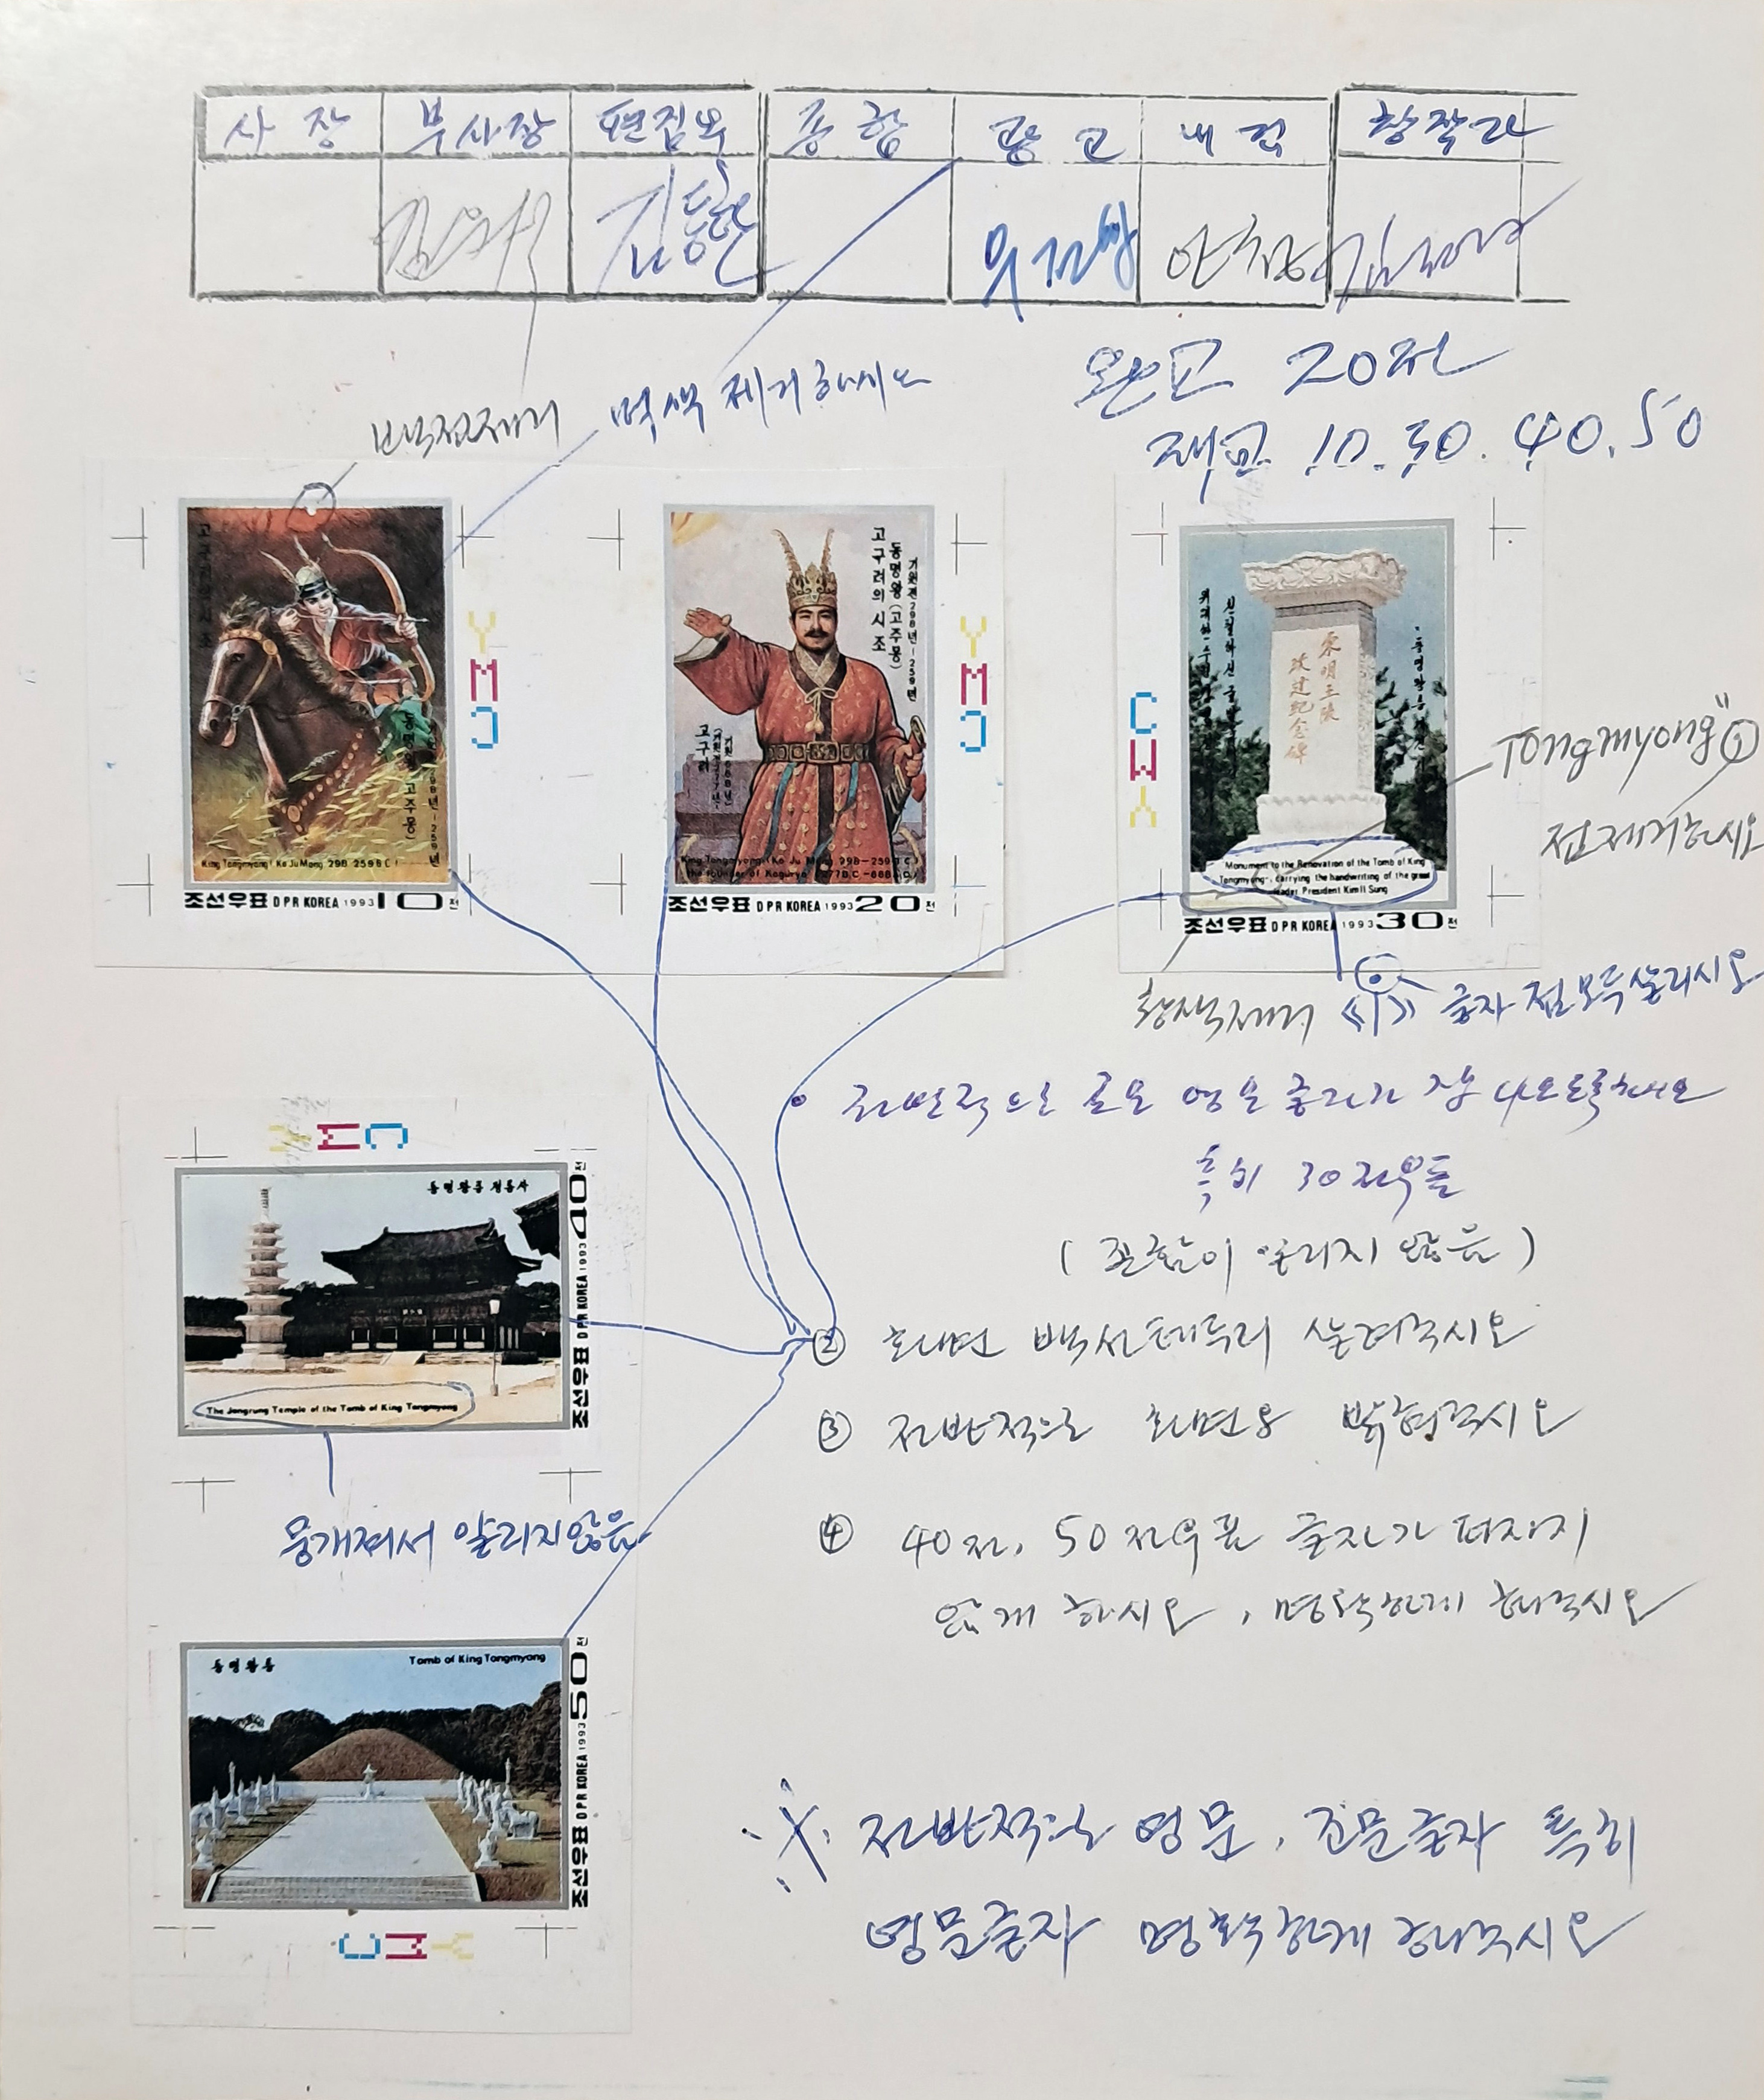 사장 부사장 편집부 종합 광고 내적 창작과
완고 20전
재교 10. 30. 40. 50
백점제거 먹색 제거하시오
고구려의 시조
동명왕 (고주몽)
King Tongmyong( Ko Ju Mong 298-259 B C )
조선우표 DPR KOREA 1993 10전
Y M C
고구려의 시조
동명왕 (고주몽)
기원전 298년-259년
고구려
King Tongmyong (Ko Ju Mong 298-259 B C)
the founder of Koguryo (277 B.C.-668 A.D.)
조선우표 DPR KOREA 1993 20전
Y M C
東明王陵
改建紀念碑
Monument to the Renovation of the Tomb of King
Tongmyong, carrying the handwriting of the great
leader President Kim Il Sung
조선우표 DPR KOREA 1993 30전
C M Y
Tongmyong" ①
점제거하시오
황색제거 《 》 글자 점 모두 살리시오
전반적으로 조문 영문 글자가 잘 나오도록 하시오
특히 30전우표
( 전혀 알리지 않음 )
② 화면 백선테두리 살려주시오
③ 전반적으로 화면을 밝혀주시오
④ 40전, 50전우표 글자가 터지지
않게 하시오, 명확하게 해주시오
C M Y
동명왕릉 정릉사
The Jongrung Temple of the Tomb of King Tongmyong
조선우표 DPR KOREA 1993 40전
뭉개져서 알리지않음
동명왕릉
Tomb of King Tongmyong
조선우표 DPR KOREA 1993 50전
C M Y
※ 전반적으로 영문, 조문글자 특히
영문글자 명확하게 해주시오